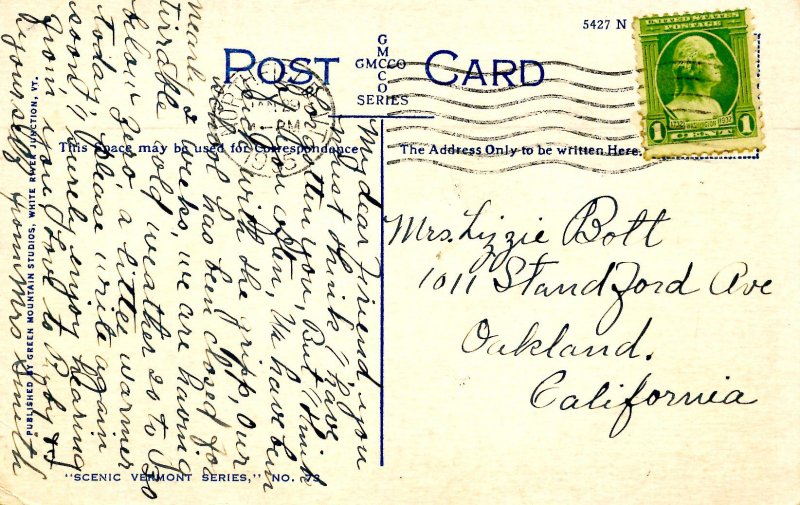 5427 N
POST CARD
GMCCO
GMCCO
SERIES
UNITED STATES
POSTAGE
1732 WASHINGTON 1932
1 CENT 1
This Space may be used for Correspondence
The Address Only to be written Here.
My dear Friend, you
must think I have
forgotten you, But I think
of you often, We have been
sick with the gripp, our
school has been closed for
nearly 2 weeks, we are having
terrible cold weather 20 to 30
below zero a little warmer
today, please write again
soon, I surely enjoy hearing
from you Love to &
yourself from Mrs Smith
Mrs. Lizzie Bott
1011 Standford Ave
Oakland.
California
PUBLISHED BY GREEN MOUNTAIN STUDIOS, WHITE RIVER JUNCTION, VT.
"SCENIC VERMONT SERIES," NO. 73